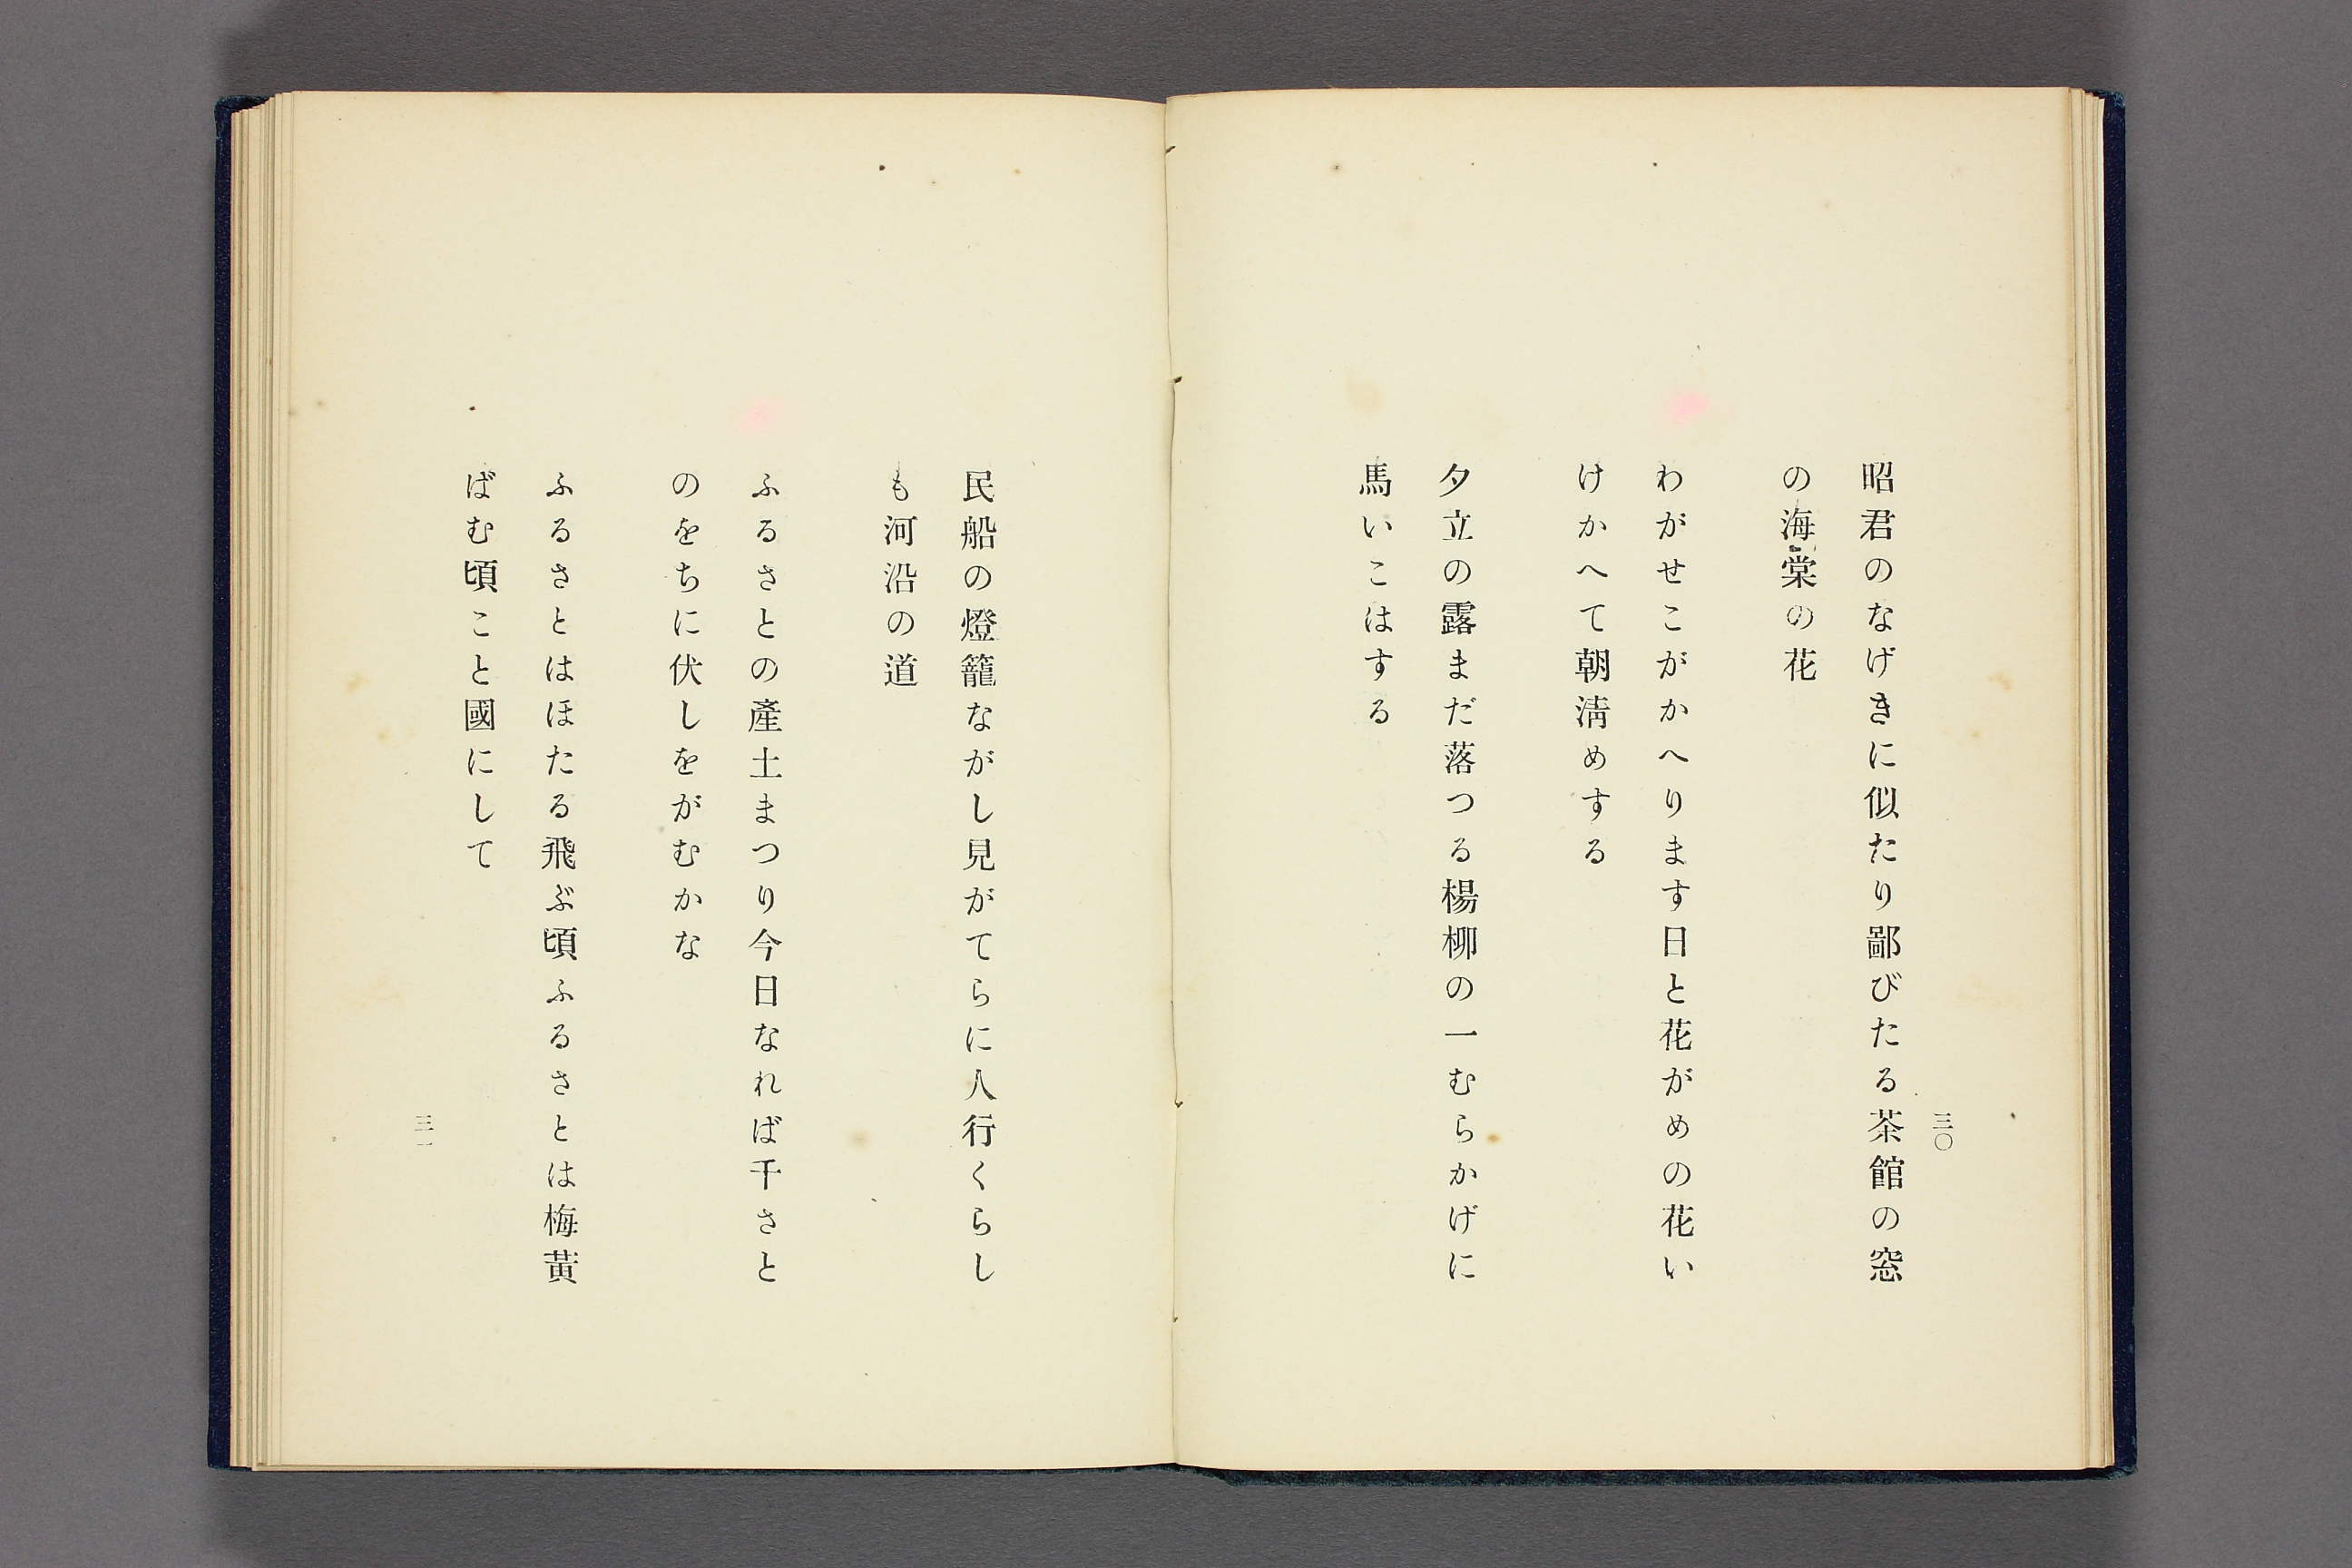 三〇
昭君のなげきに似たり鄙びたる茶館の窓
の海棠の花
わがせこがかへります日と花がめの花い
けかへて朝淸めする
夕立の露まだ落つる楊柳の一むらかげに
馬いこはする
民船の燈籠ながし見がてらに人行くらし
も河沿の道
ふるさとの產土まつり今日なれば千さと
のをちに伏しをがむかな
ふるさとはほたる飛ぶ頃ふるさとは梅黃
ばむ頃こと國にして
三一